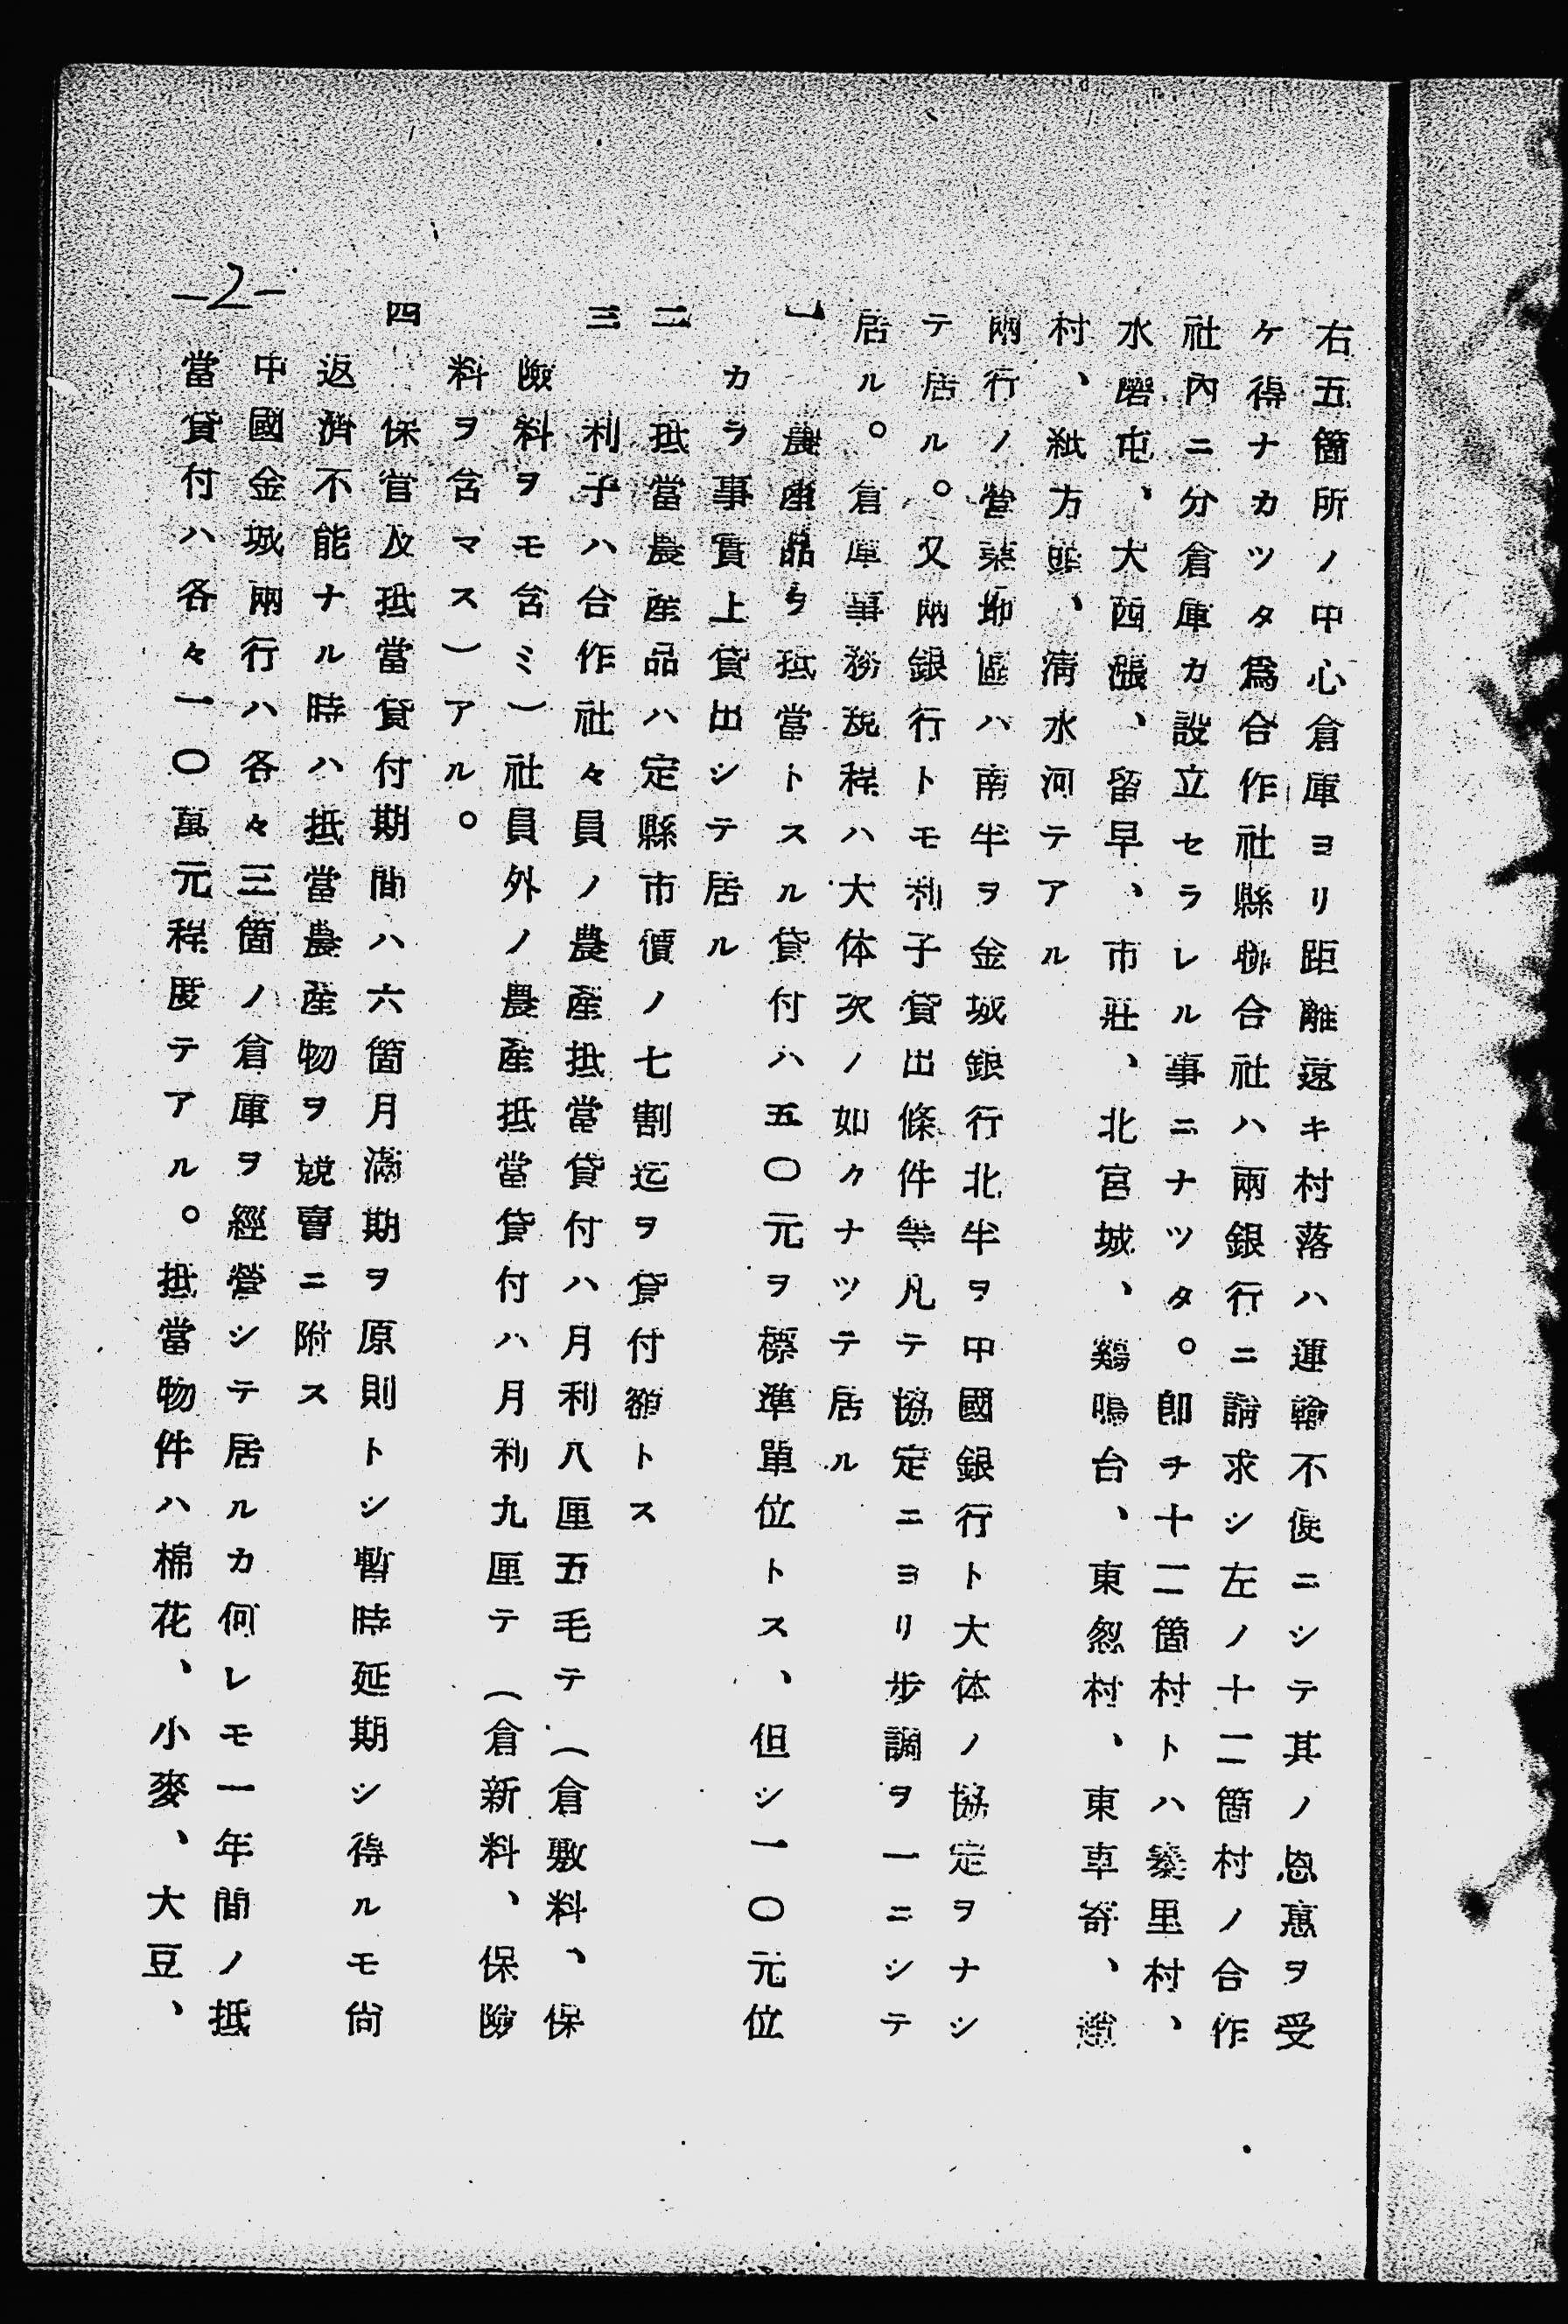 右五箇所ノ中心倉庫ヨリ距離遠キ村落ハ運輸不便ニシテ其ノ恩惠ヲ受
ケ得ナカツタ爲合作社縣聯合社ハ兩銀行ニ請求シ左ノ十二箇村ノ合作
社內ニ分倉庫カ設立セラレル事ニナツタ。卽チ十二箇村トハ 里村、
水磨屯、大西漲、留早、市莊、北宮城、鷄鳴台、東怱村、東車寄、
村、紙方頭、淸水河テアル
兩行ノ營業地區ハ南半ヲ金城銀行北半ヲ中國銀行ト大体ノ協定ヲナシ
テ居ル。又兩銀行トモ利子貸出條件等凡テ協定ニヨリ步調ヲ一ニシテ
居ル。倉庫事務規程ハ大体次ノ如クナツテ居ル
一 農產品ヲ抵當トスル貸付ハ五〇元ヲ標準單位トス、但シ一〇元位
カラ事實上貸出シテ居ル
二 抵當農產品ハ定縣市價ノ七割迄ヲ貸付額トス
三 利子ハ合作社々員ノ農產抵當貸付ハ月利八厘五毛テ（倉敷料、保
險料ヲモ含ミ）社員外ノ農產抵當貸付ハ月利九厘テ（倉新料、保險
料ヲ含マス）アル。
四 保管及抵當貸付期間ハ六箇月滿期ヲ原則トシ暫時延期シ得ルモ尙
返濟不能ナル時ハ抵當農產物ヲ競賣ニ附ス
中國金城兩行ハ各々三箇ノ倉庫ヲ經營シテ居ルカ何レモ一年間ノ抵
當貸付ハ各々一〇萬元程度テアル。抵當物件ハ棉花、小麥、大豆、
—2—